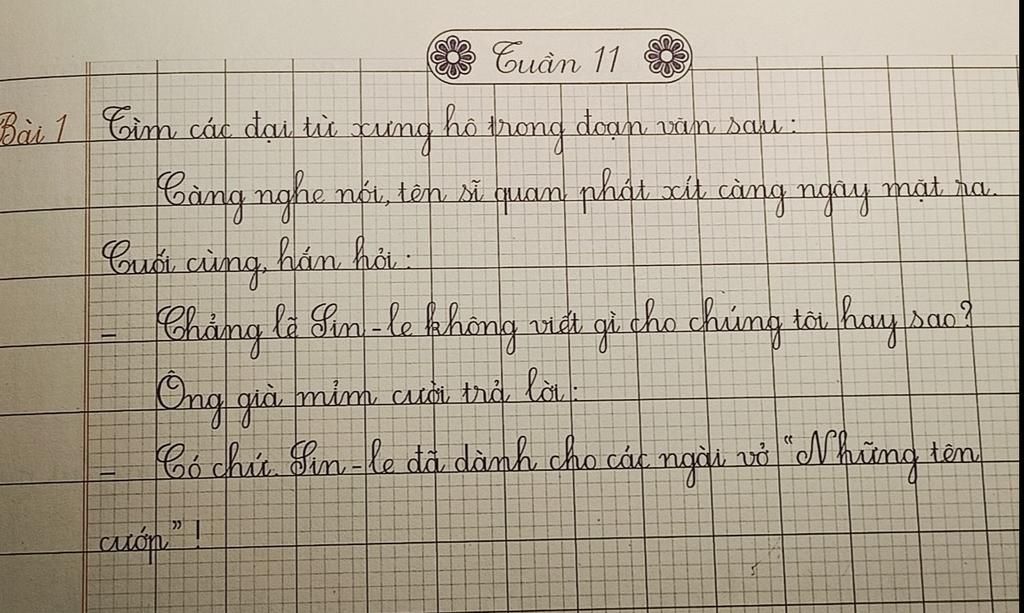 Tuần 11
Bài 1 Tìm các đại từ xưng hô trong đoạn văn sau:
Càng nghe nói, tên sĩ quan phát xít càng ngây mặt ra.
Cuối cùng, hắn hỏi:
- Chẳng lẽ Sin-le không viết gì cho chúng tôi hay sao?
Ông già mỉm cười trả lời:
- Có chứ. Sin-le đã dành cho các ngài vở “Những tên
cướp”!